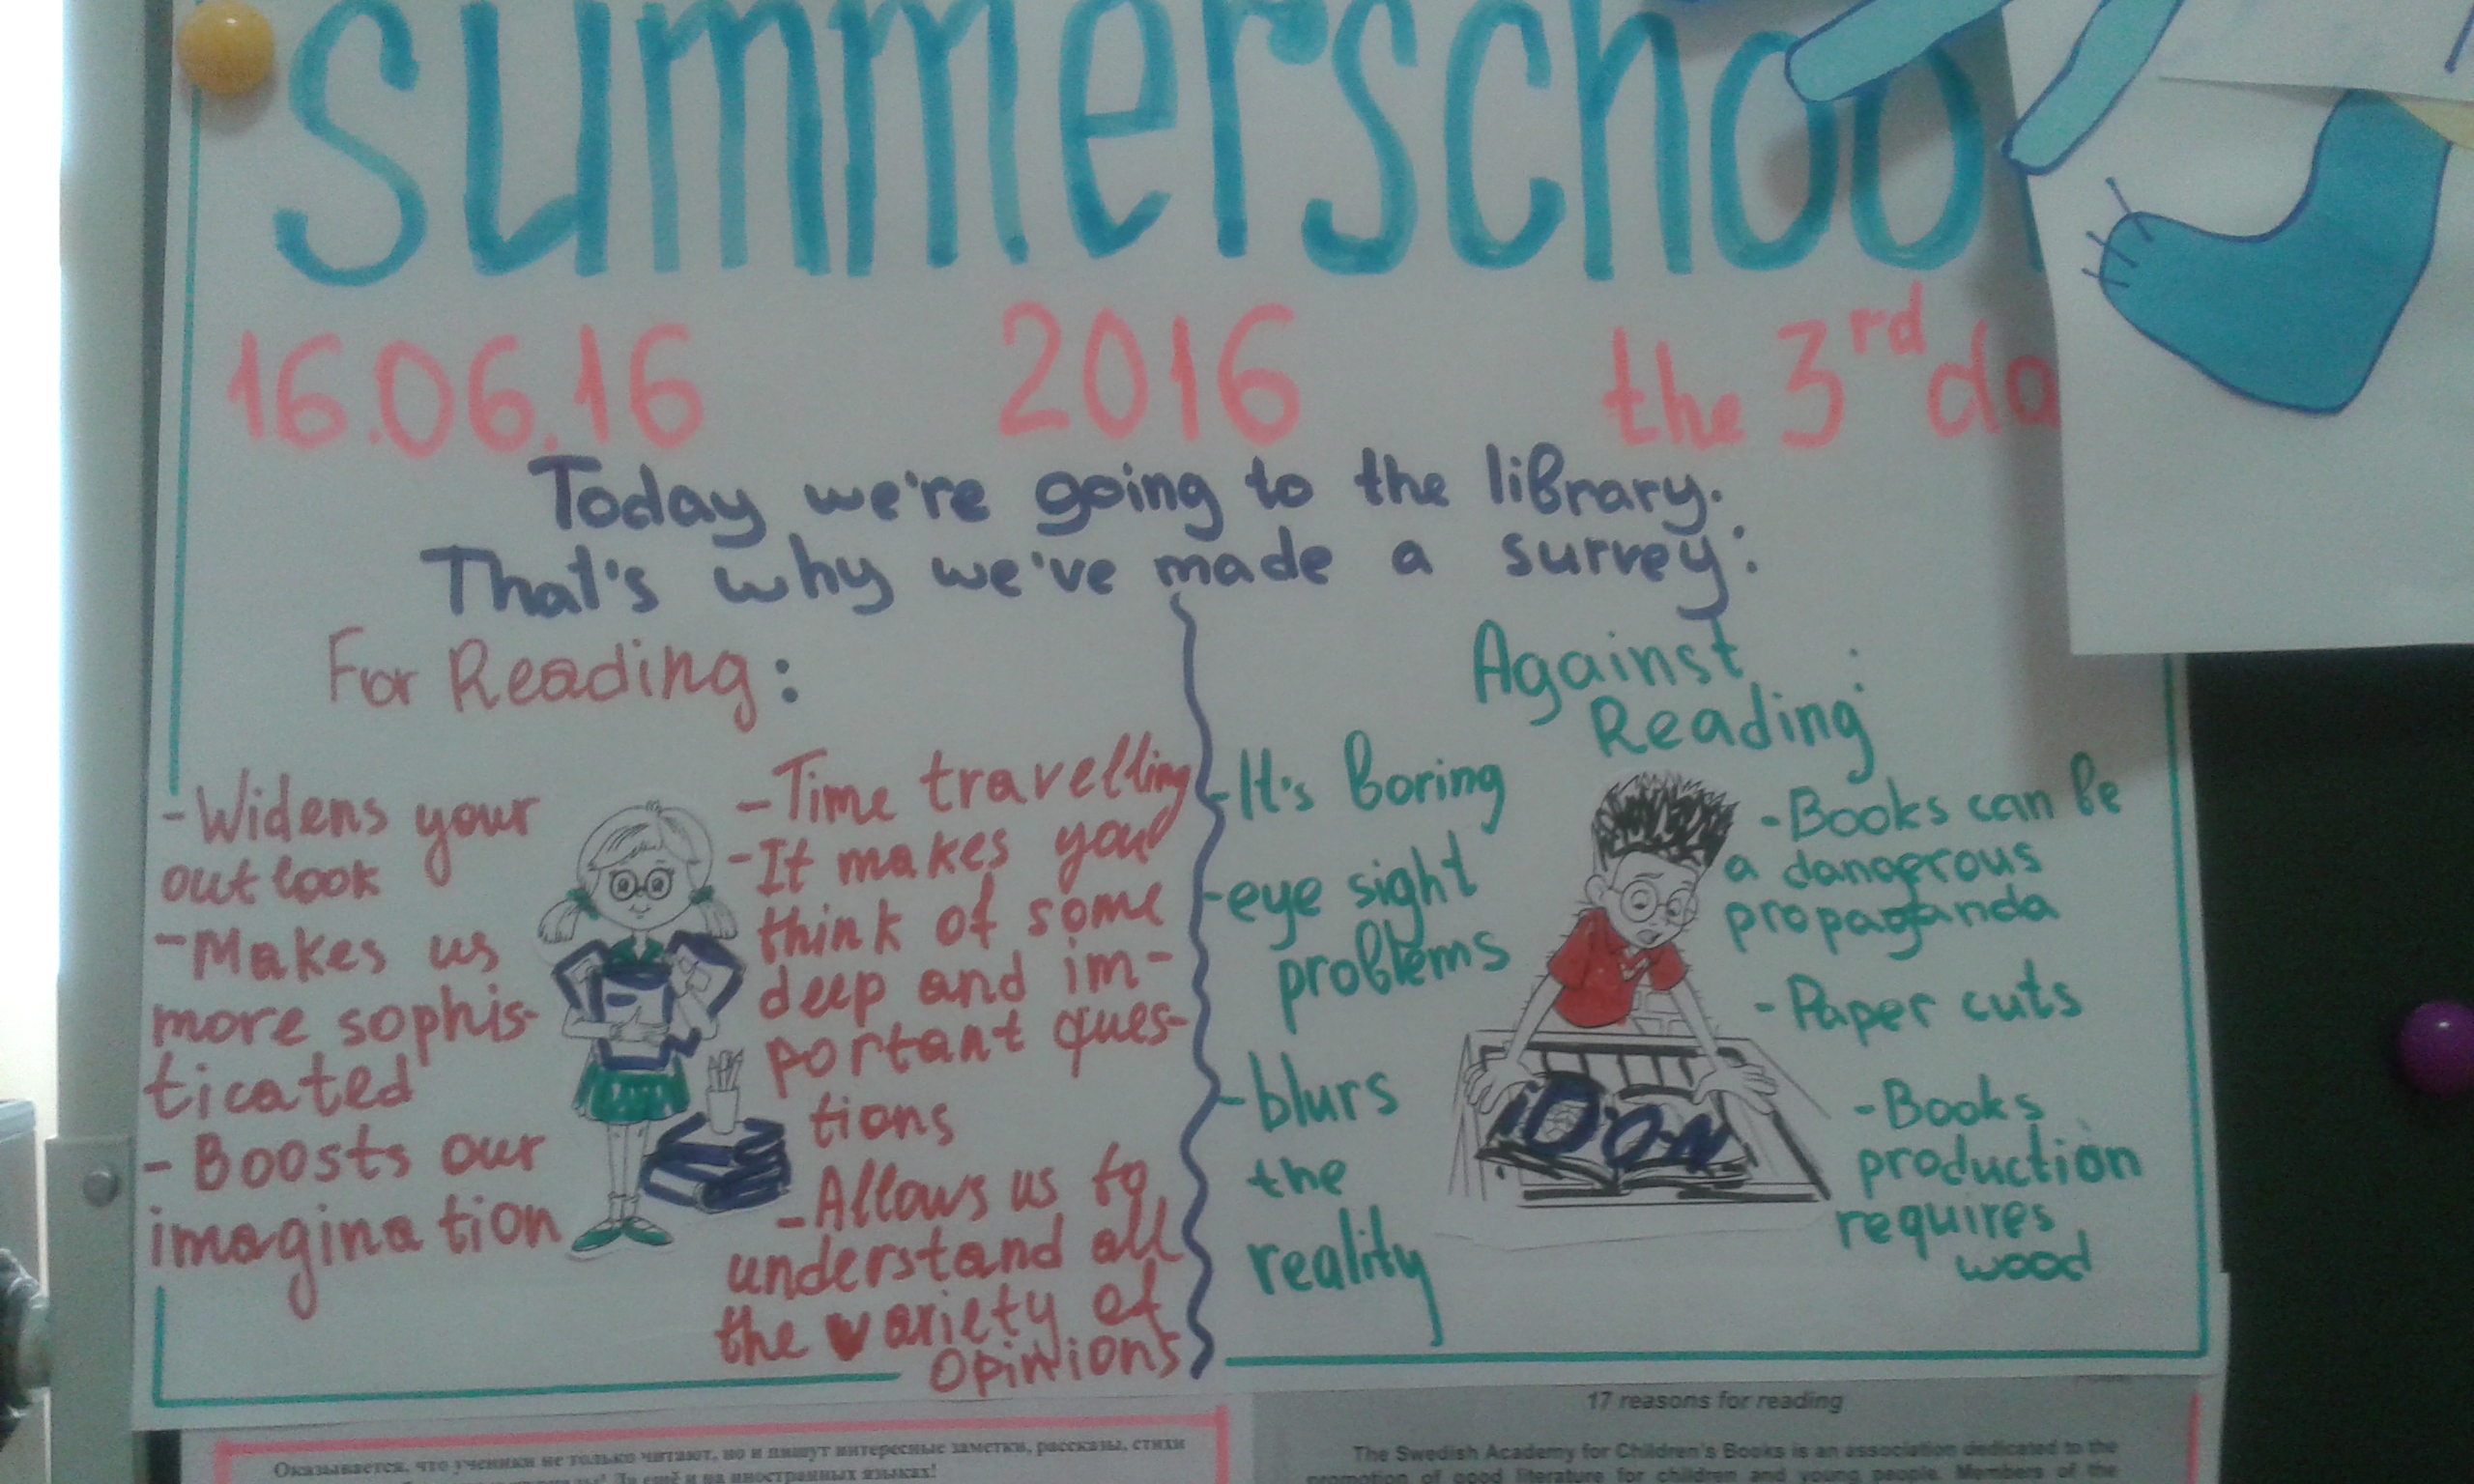 summerschool
16.06.16 2016 the 3rd da
Today we're going to the library.
That's why we've made a survey:
For Reading:
-Widens your
outlook
-Makes us
more sophis-
ticated
- Boosts our
imagination
-Time travelling
-It makes you
think of some
deep and im-
portant ques-
tions
-Allows us to
understand all
the variety of
opinions
Against
Reading:
-It's boring
-eye sight
problems
-blurs
the
reality
-Books can be
a dangerous
propaganda
-Paper cuts
-Books
production
requires
wood
Оказывается, что ученики не только читают, но и пишут интересные заметки, рассказы, стихи
Да ещё и на иностранных языках!
17 reasons for reading
The Swedish Academy for Children's Books is an association dedicated to the
promotion of good literature for children and young people. Members of the